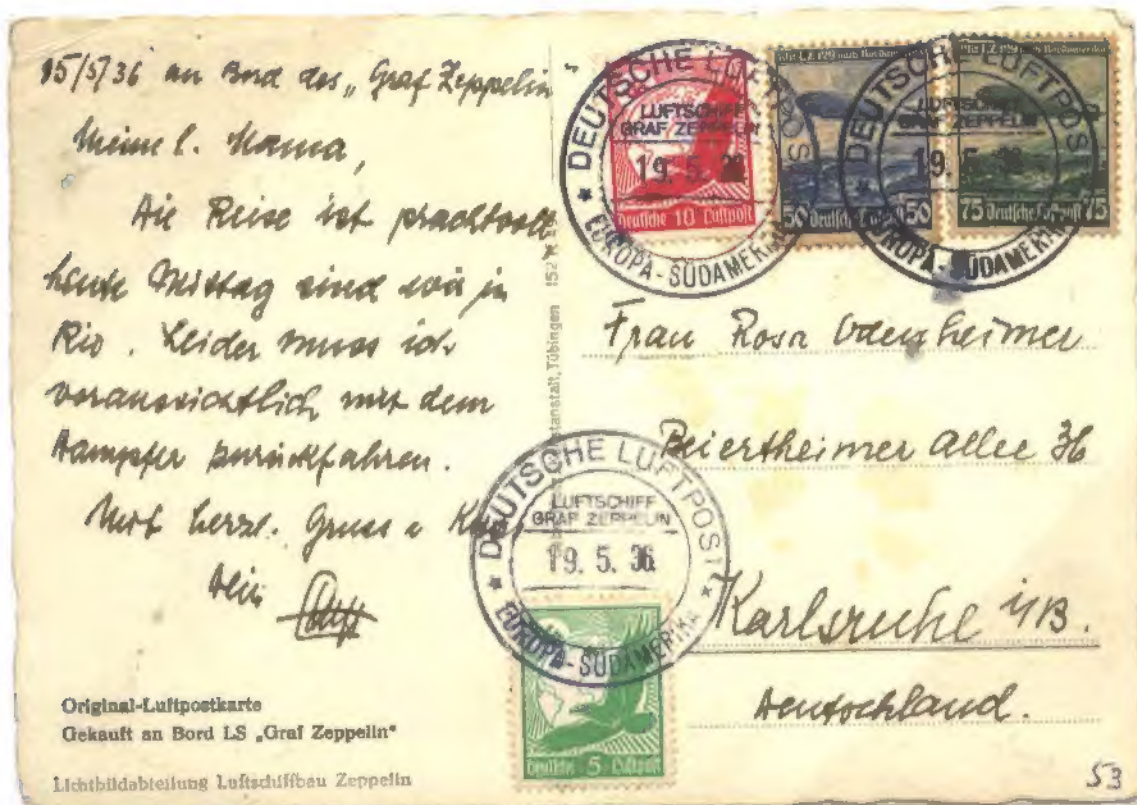 15/5/36 an Bord des „Graf Zeppelin
Meine l. Mama,
Die Reise ist prachtvoll
heute Mittag sind wir in
Rio. Leider muss ich
voraussichtlich mit dem
Dampfer zurückfahren.
Mit herzl. Gruss u
Dein
Original-Luftpostkarte
Gekauft an Bord LS „Graf Zeppelin“
Lichtbildabteilung Luftschiffbau Zeppelin
tanstalt, Tübingen 152
DEUTSCHE LUFTPOST
LUFTSCHIFF
GRAF ZEPPELIN
19. 5. 36
EUROPA-SÜDAMERIKA
Deutsche 10 Luftpost
Mit LZ 129 nach Nordamerika
50 Deutsche Luftpost 50
DEUTSCHE LUFTPOST
LUFTSCHIFF
GRAF ZEPPELIN
19. 5. 36
EUROPA-SÜDAMERIKA
Mit LZ 129 nach Nordamerika
75 Deutsche Luftpost 75
Frau Rosa Odenheimer
Beiertheimer Allee 36
Karlsruhe i/B.
Deutschland.
DEUTSCHE LUFTPOST
LUFTSCHIFF
GRAF ZEPPELIN
19. 5. 36
EUROPA-SÜDAMERIKA
Deutsche 5 Luftpost
53